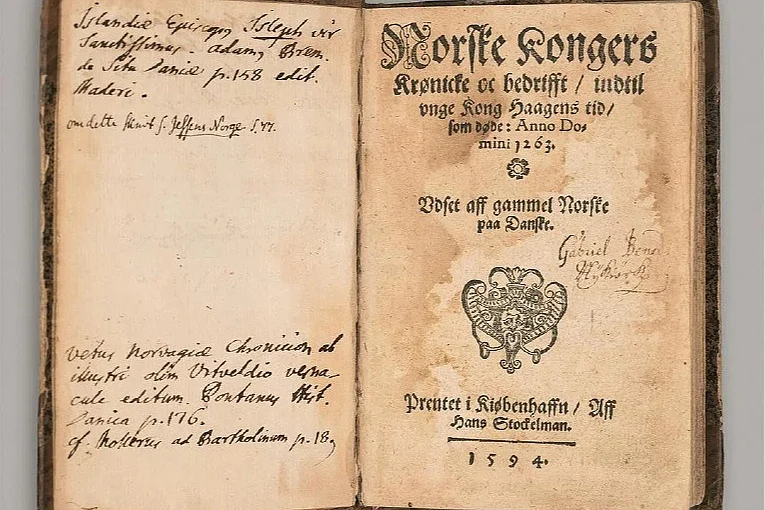 Islandiæ Episcop, Isleph vir
Sanctissimus. adam, Brem.
de Situ Daniæ p. 158 edit.
Maderi.
om dette skrift s. Jessens Norge S. 77.
vetus Norvagiæ Chronicion ab
illustri olim Vitveldio verna-
cule editum. Pontanus Hist.
Danica p. 176.
cf. Mollerus ad Bartholinum p. 18
Norske Kongers
Krønicke oc bedrifft / indtil
vnge Kong Haagens tid /
som døde: Anno Do-
mini 1263.
Vdset aff gammel Norske
paa Danske.
Gabriel
Prentet i Kiøbenhaffn / Aff
Hans Stockelman.
1594.